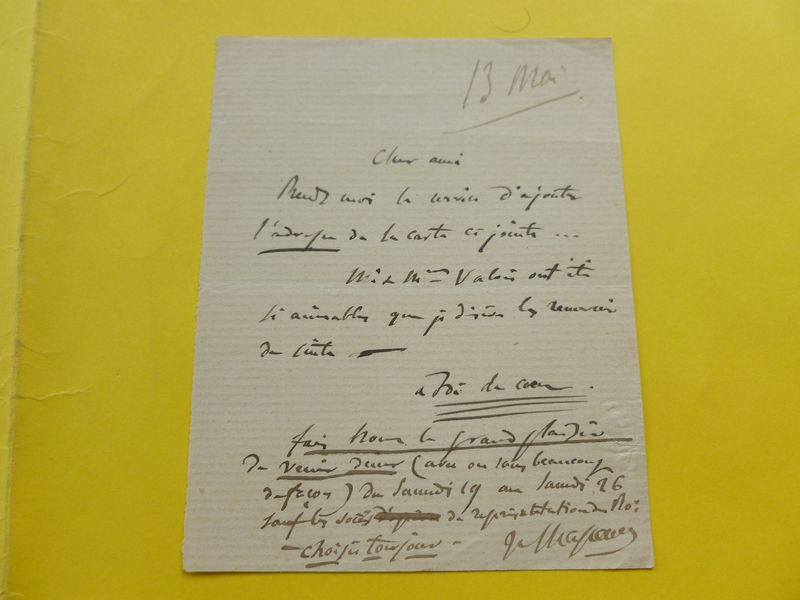 13 Mai
Cher ami
Rends moi le service d'ajouter
l'adresse de la carte ci jointe ...
Mr & Mme Valois ont été
si aimables que je désire les remercier
de suite —
a toi de coeur.
fais nous le grand plaisir
de venir diner (avec ou sans beaucoup
de façons) du Samedi 19 au Samedi 26
sauf les soirs de représentation du Roi
- choisis ton jour -
J. Massenet